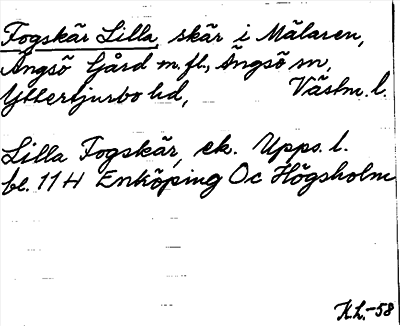 Fogskär Lilla, skär i Mälaren,
Ängsö Gård m.fl., Ängsö sn,
Yttertjurbo hd, Västm. l.
Lilla Fogskär, ek. Upps. l.
bl. 114 Enköping Oc Högsholm
K.L.-58